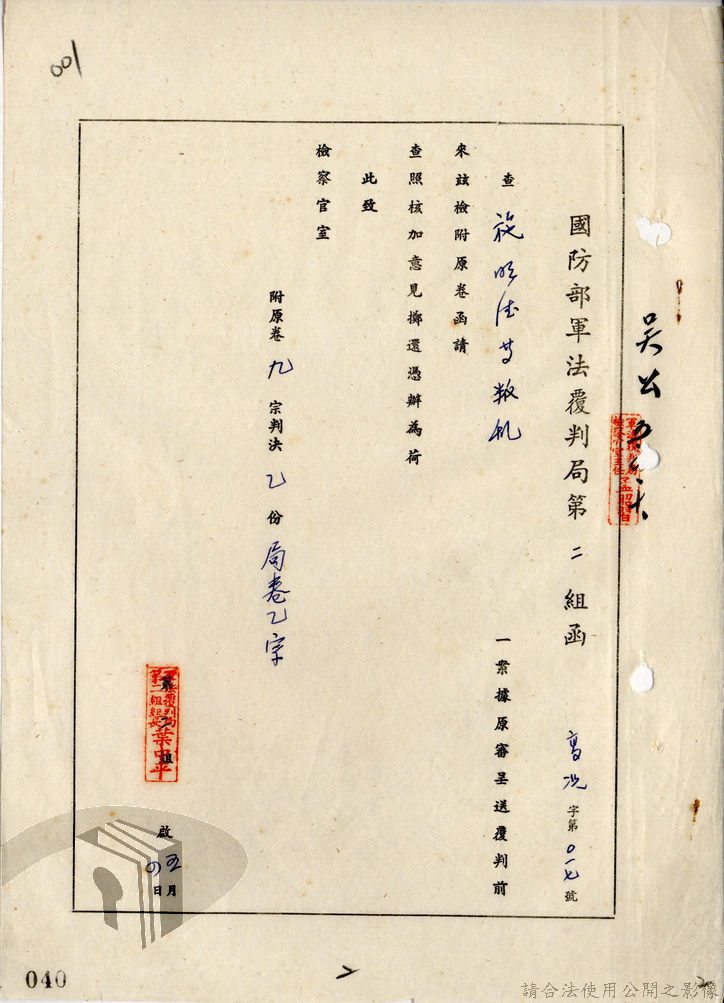 001
國防部軍法覆判局第二組函
字第〇一七號
查施明德等叛亂一案據原審呈送覆判前
來茲檢附原卷函請
查照核加意見擲還憑辦為荷
此致
檢察官室
附原卷九宗判決乙份局卷乙宗
軍法覆判局
第二組組長葉中平
第二組
啟
五月
日
040
請合法使用公開之影像